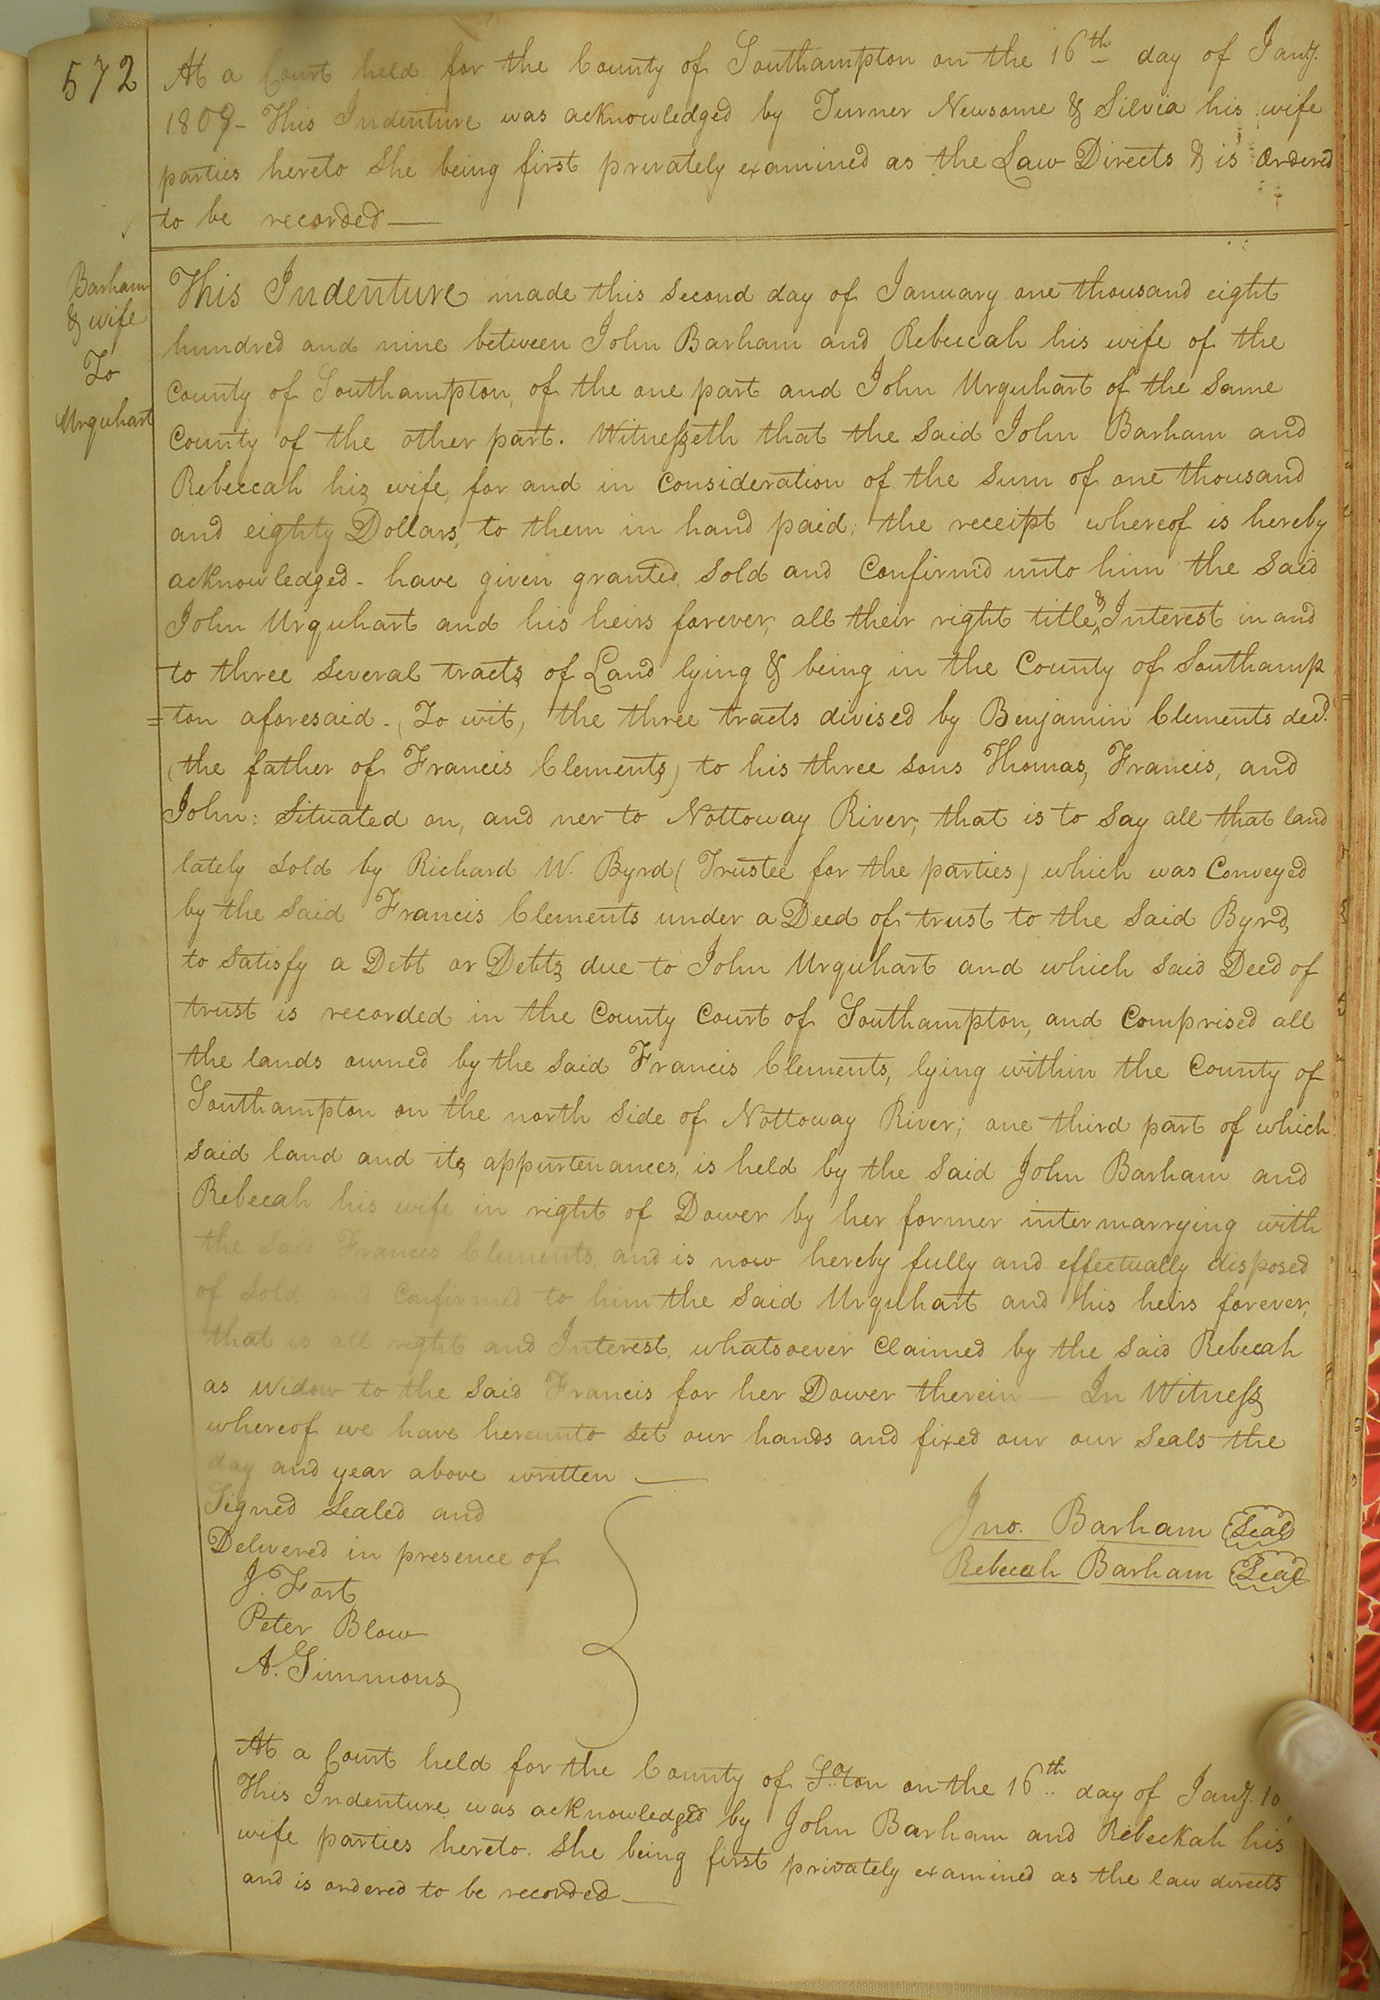 572
At a Court held for the County of Southampton on the 16th day of Jany.
1809 - This Indenture was acknowledged by Turner Newsome & Silvia his wife
parties hereto she being first privately examined as the Law Directs & is ordered
to be recorded —
Barham
& wife
To
Urquhart
This Indenture made this second day of January one thousand eight
hundred and nine between John Barham and Rebeccah his wife of the
County of Southampton, of the one part and John Urquhart of the same
County of the other part. Witnesseth that the said John Barham and
Rebeccah his wife, for and in consideration of the sum of one thousand
and eighty Dollars, to them in hand paid; the receipt whereof is hereby
acknowledged - have given granted, sold and Confirm'd unto him the said
John Urquhart and his heirs forever, all their right title & Interest in and
to three several tracts of Land lying & being in the County of Southamp
=ton aforesaid - (To wit, the three tracts divised by Benjamin Clements decd.
(the father of Francis Clements) to his three sons Thomas, Francis, and
John: Situated on, and ner to Nottoway River; that is to say all that land
lately sold by Richard W. Byrd (Trustee for the parties) which was Conveyed
by the said Francis Clements under a Deed of trust to the said Byrd,
to satisfy a Debt or Debts due to John Urquhart and which said Deed of
trust is recorded in the County Court of Southampton, and Comprised all
the lands owned by the said Francis Clements, lying within the County of
Southampton on the north side of Nottoway River; one third part of which
said land and its appurtenances, is held by the said John Barham and
Rebecah his wife in right of Dower by her former intermarrying with
the said Francis Clements, and is now hereby fully and effectually disposed
of sold and Confirmed to him the said Urquhart and his heirs forever,
that is all right and Interest, whatsoever Claimed by the said Rebecah
as Widow to the said Francis for her Dower therein — In Witness
whereof we have hereunto set our hands and fixed our our seals the
day and year above written —
Signed sealed and
Delivered in presence of
J. Fort
Peter Blow
A. Simmons
Jno. Barham Seal
Rebecah Barham Seal
At a Court held for the County of So.ton on the 16th day of Jany. 10
This Indenture was acknowledged by John Barham and Rebeckah his
wife parties hereto. she being first privately examined as the law directs
and is ordered to be recorded —